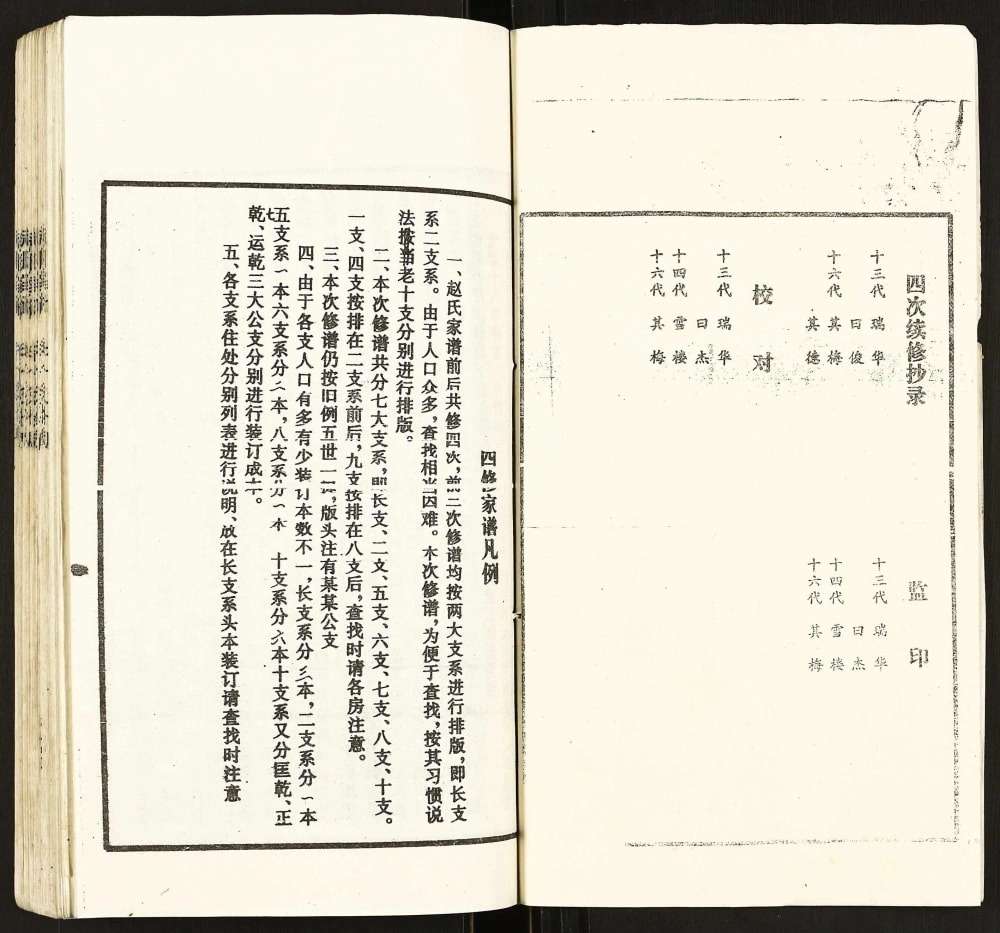 四次续修抄录
十三代 瑞华
日俊
十六代 其梅
其德
监印
十三代 瑞华
日杰
十四代 雪楼
十六代 其梅
校对
十三代 瑞华
日杰
十四代 雪楼
十六代 其梅
四修家谱凡例
一、赵氏家谱前后共修四次，前三次修谱均按两大支系进行排版，即长支
系二支系。由于人口众多，查找相当困难。本次修谱，为便于查找，按其习惯说
法按老十支分别进行排版。
二、本次修谱共分七大支系，即长支、二支、五支、六支、七支、八支、十支。
一支、四支按排在二支系前后，九支按排在八支后，查找时请各房注意。
三、本次修谱仍按旧例五世一提，版头注有某某公支
四、由于各支人口有多有少装订本数不一，长支系分三本，二支系分一本
五七支系一本六支系分八本，八支系分一本 十支系分六本十支系又分匡乾、正
乾、运乾三大公支分别进行装订成本。
五、各支系住处分别列表进行说明、放在长支系头本装订请查找时注意